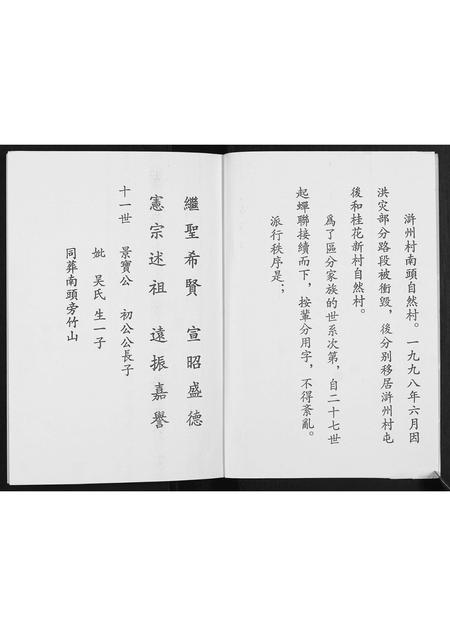 滸州村南頭自然村。一九九八年六月因
洪灾部分路段被衝毀，後分别移居滸州村屯
後和桂花新村自然村。
爲了區分家族的世系次第，自二十七世
起蟬聯接續而下，按輩分用字，不得紊亂。
派行秩序是：；
繼聖希賢　宣昭盛德
憲宗述祖　遠振嘉譽
十一世　景寶公　初公公長子
妣　吴氏　生一子
同葬南頭旁竹山